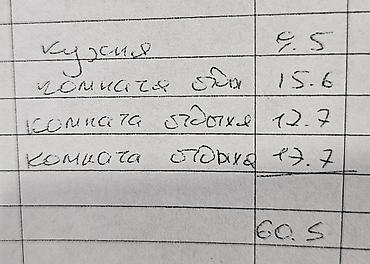 кухня 9.5
комната отды 15.6
комната отдыха 17.7
комната отдыха 17.7
60.5